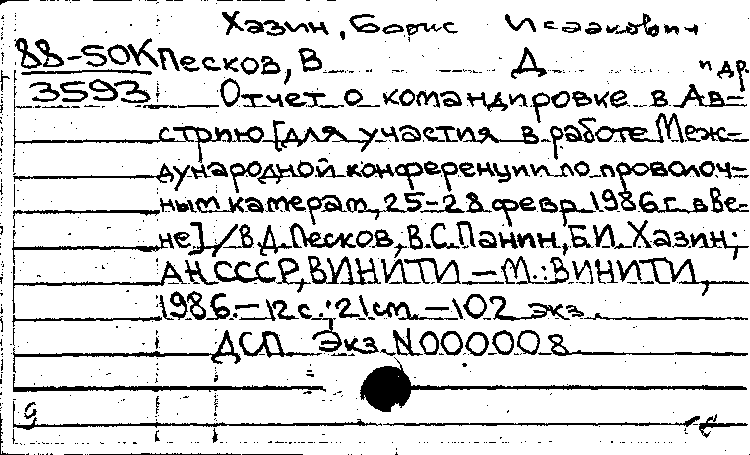 Хазин, Борис Исаакович
88-50К Песков, В Д и др
3593 Отчет о командировке в Ав-
стрию [для участия в работе Меж-
дународной конференции по проволоч-
ным камерам, 25-28 февр. 1986 г. в Ве-
не] / В.Д. Песков, В.С. Панин, Б.И. Хазин;
АН СССР, ВИНИТИ – М.: ВИНИТИ,
1986. – 12 с.; 21 см. – 102 экз.
ДСП. Экз. N000008
9